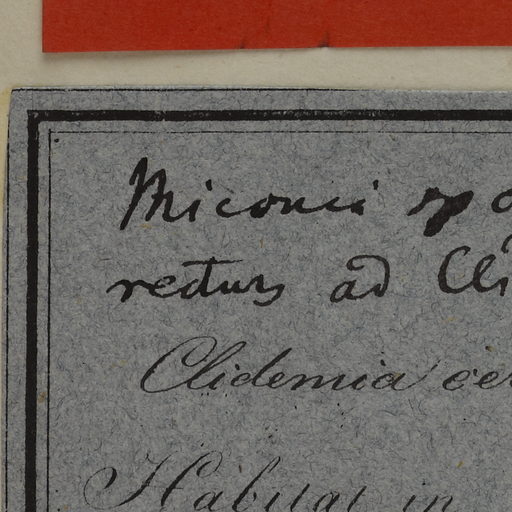 Miconia sp
rectus ad Cli
Clidemia cer
Habitat in